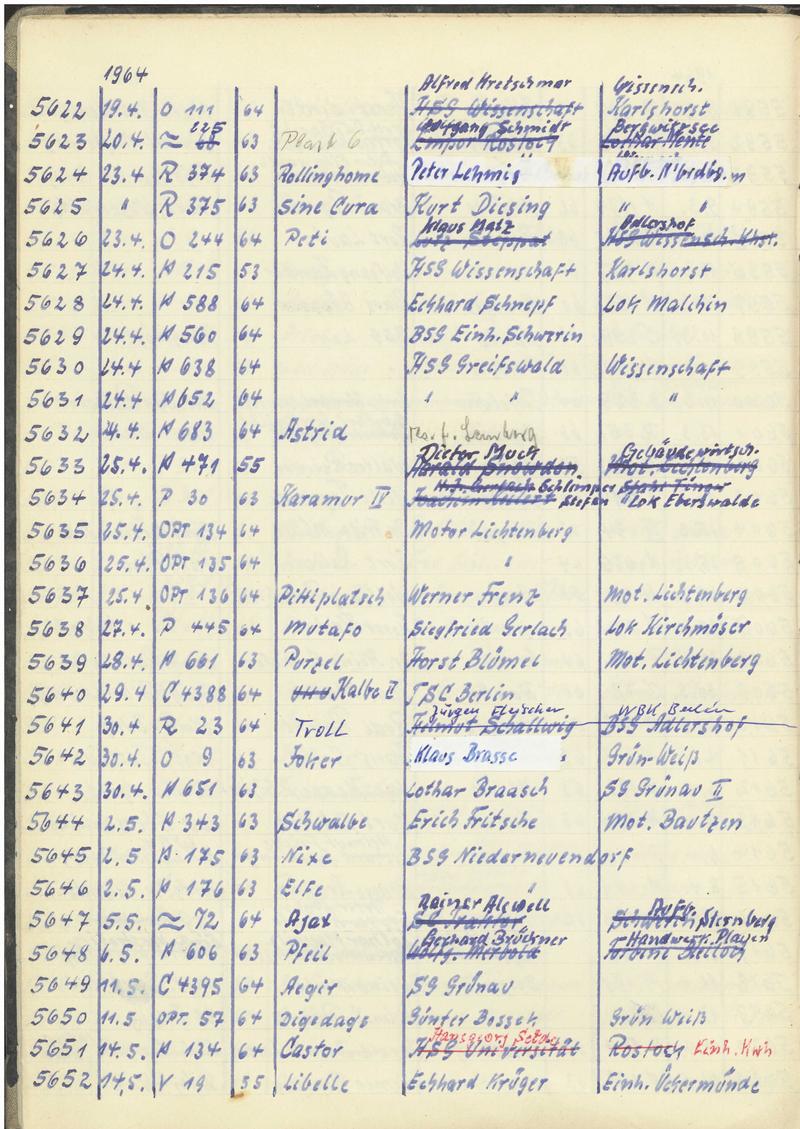 1964
Alfred Kretschmar Wissensch.
5622 19.4. O 111 64 HSG Wissenschaft Karlshorst
225 Wolfgang Schmidt Bergwitzsee
5623 20.4. ≈ 63 Plast 6 Empor Rostock Lothar
5624 23.4 R 374 63 Rollinghome Peter Lehmig Aufb. N'brdbg.
5625 " R 375 63 Sine Cura Kurt Diesing " "
Klaus Matz Adlershof
5626 23.4. O 244 64 Peti Lutz HSG Wissensch. Khst.
5627 24.4. H 215 53 HSG Wissenschaft Karlshorst
5628 24.4. H 588 64 Eckhard Schnepf Lok Malchin
5629 24.4. H 560 64 BSG Einh. Schwerin
5630 24.4 H 638 64 HSG Greifswald Wissenschaft
5631 24.4 H 652 64 " " "
5632 24.4. H 683 64 Astrid res. f.
Dieter Muck Gebäudewirtsch.
5633 25.4. H 471 55 Harald Snowdon Mot. Lichtenberg
H.J. Schlömper Stahl Finow
5634 25.4. P 30 63 Karamur IV Joachim Stefen Lok Eberswalde
5635 25.4. OPT 134 64 Motor Lichtenberg
5636 25.4. OPT 135 64 "
5637 25.4 OPT 136 64 Pittiplatsch Werner Frenz Mot. Lichtenberg
5638 27.4. P 445 64 Mutafo Siegfried Gerlach Lok Kirchmöser
5639 28.4. H 661 63 Purzel Horst Blümel Mot. Lichtenberg
5640 29.4 C 4388 64 Kalbe II TSC Berlin
Jürgen Fleischer WBK Berlin
5641 30.4. R 23 64 Troll Helmut Schallwig BSG Adlershof
5642 30.4. O 9 63 Joker Klaus Brasse Grün-Weiß
5643 30.4. H 651 63 Lothar Braasch SG Grünau II
5644 2.5. H 343 63 Schwalbe Erich Fritsche Mot. Bautzen
5645 2.5 H 175 63 Nixe BSG Niederneuendorf
5646 2.5. H 176 63 Elfe "
Rainer Alewell Aufb.
5647 5.5. ≈ 72 64 Ajax SG Traktor Schwerin Sternberg
Gerhard Brückner Handwerk Playen
5648 6.5. H 606 63 Pfeil Wolfg.
5649 11.5. C 4395 64 Aegir SG Grünau
5650 11.5 OPT. 57 64 Digedags Günter Bossek Grün Weiß
Hansgeorg
5651 14.5. H 134 64 Castor HSG Universität Rostock Einh. Kwh
5652 14.5. V 19 35 Libelle Eckhard Krüger Einh. Ückermünde